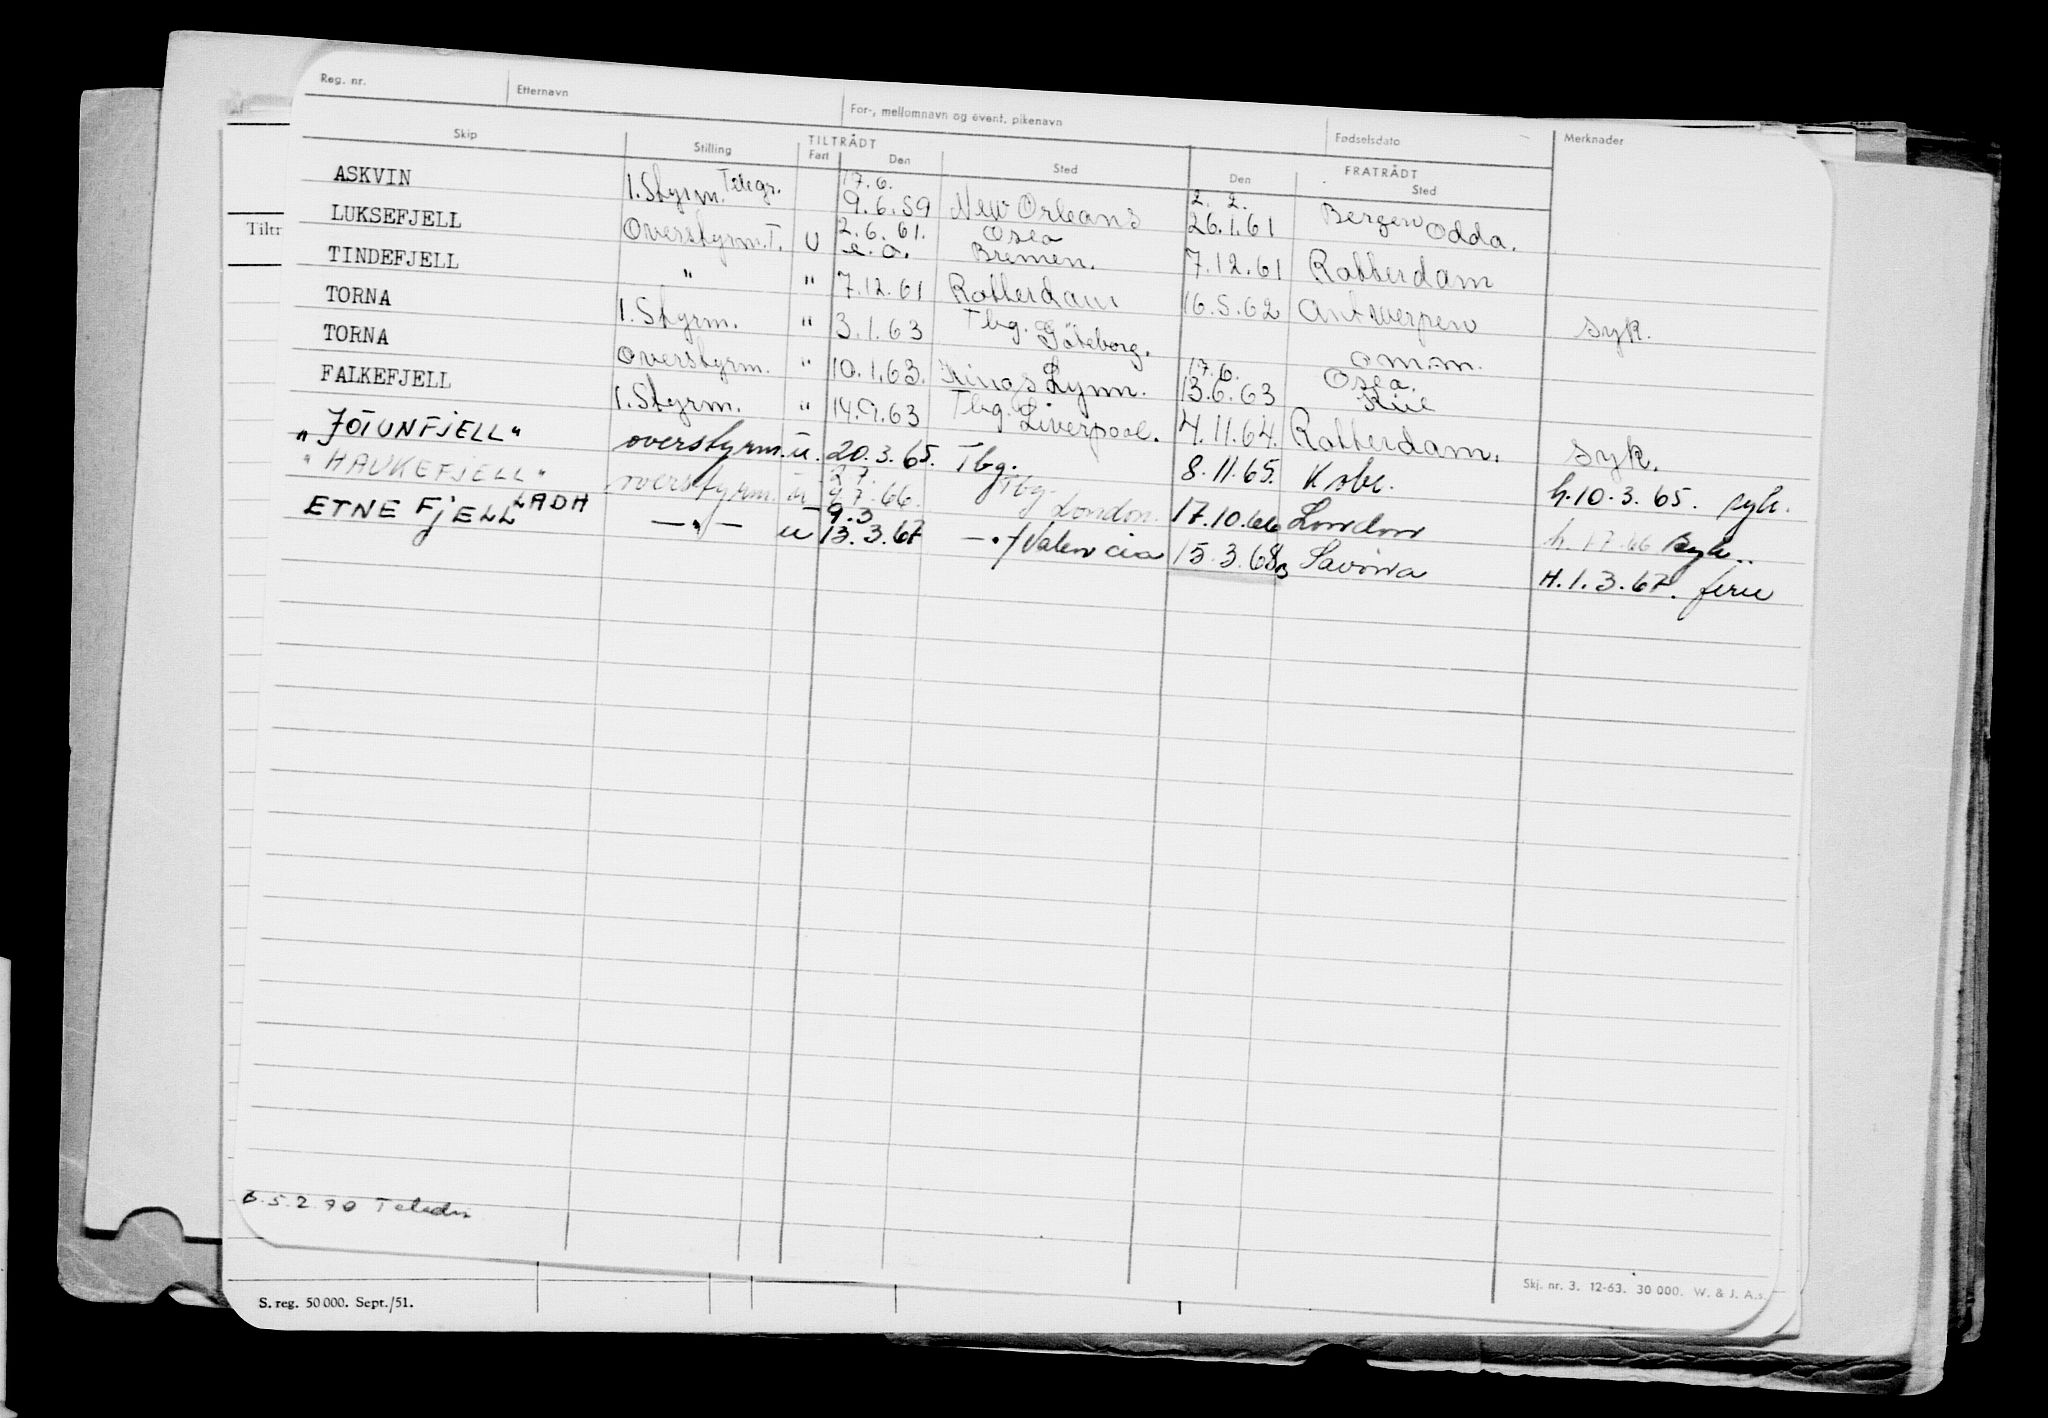 Reg. nr. Etternavn For-, mellomnavn og event. pikenavn Fødselsdato Merknader
Skip Stilling TILTRÅDT Fart Den Sted FRATRÅDT Den Sted
ASKVIN 1. Styrm. Telegr. 17.6. 9.6.59 New Orleans 2. 2. 26.1.61 Bergen Odda.
LUKSEFJELL Overstyrm. T. U 2.6.61. e.o. Oslo Bremen. 7.12.61 Rotterdam
TINDEFJELL " " 7.12.61 Rotterdam 16.5.62 Antwerpen syk.
TORNA 1. Styrm. " 3.1.63 Tbg. Göteborg. omm.
TORNA Overstyrm. " 10.1.63. Kings Lynn. 17.6. 13.6.63 Oslo. Kiel
FALKEFJELL 1. Styrm. " 14.9.63 Tbg. Liverpool. 4.11.64. Rotterdam. syk.
"JOTUNFJELL" overstyrm. u. 20.3.65. Tbg. 8.11.65. Kobe. h.10.3.65. syk.
"HAUKEFJELL" overstyrm. u 27. 4.7.66. Tbg. London. 17.10.66 London h. 1.7.66 syk.
ETNEFJELL LADH —"— u 9.3 13.3.67 —"— Valencia 15.3.68 Savona H.1.3.67. ferie
Tiltr
5.2.70
Skj. nr. 3. 12-63. 30 000. W. & J. A.s.
S. reg. 50 000. Sept./51.